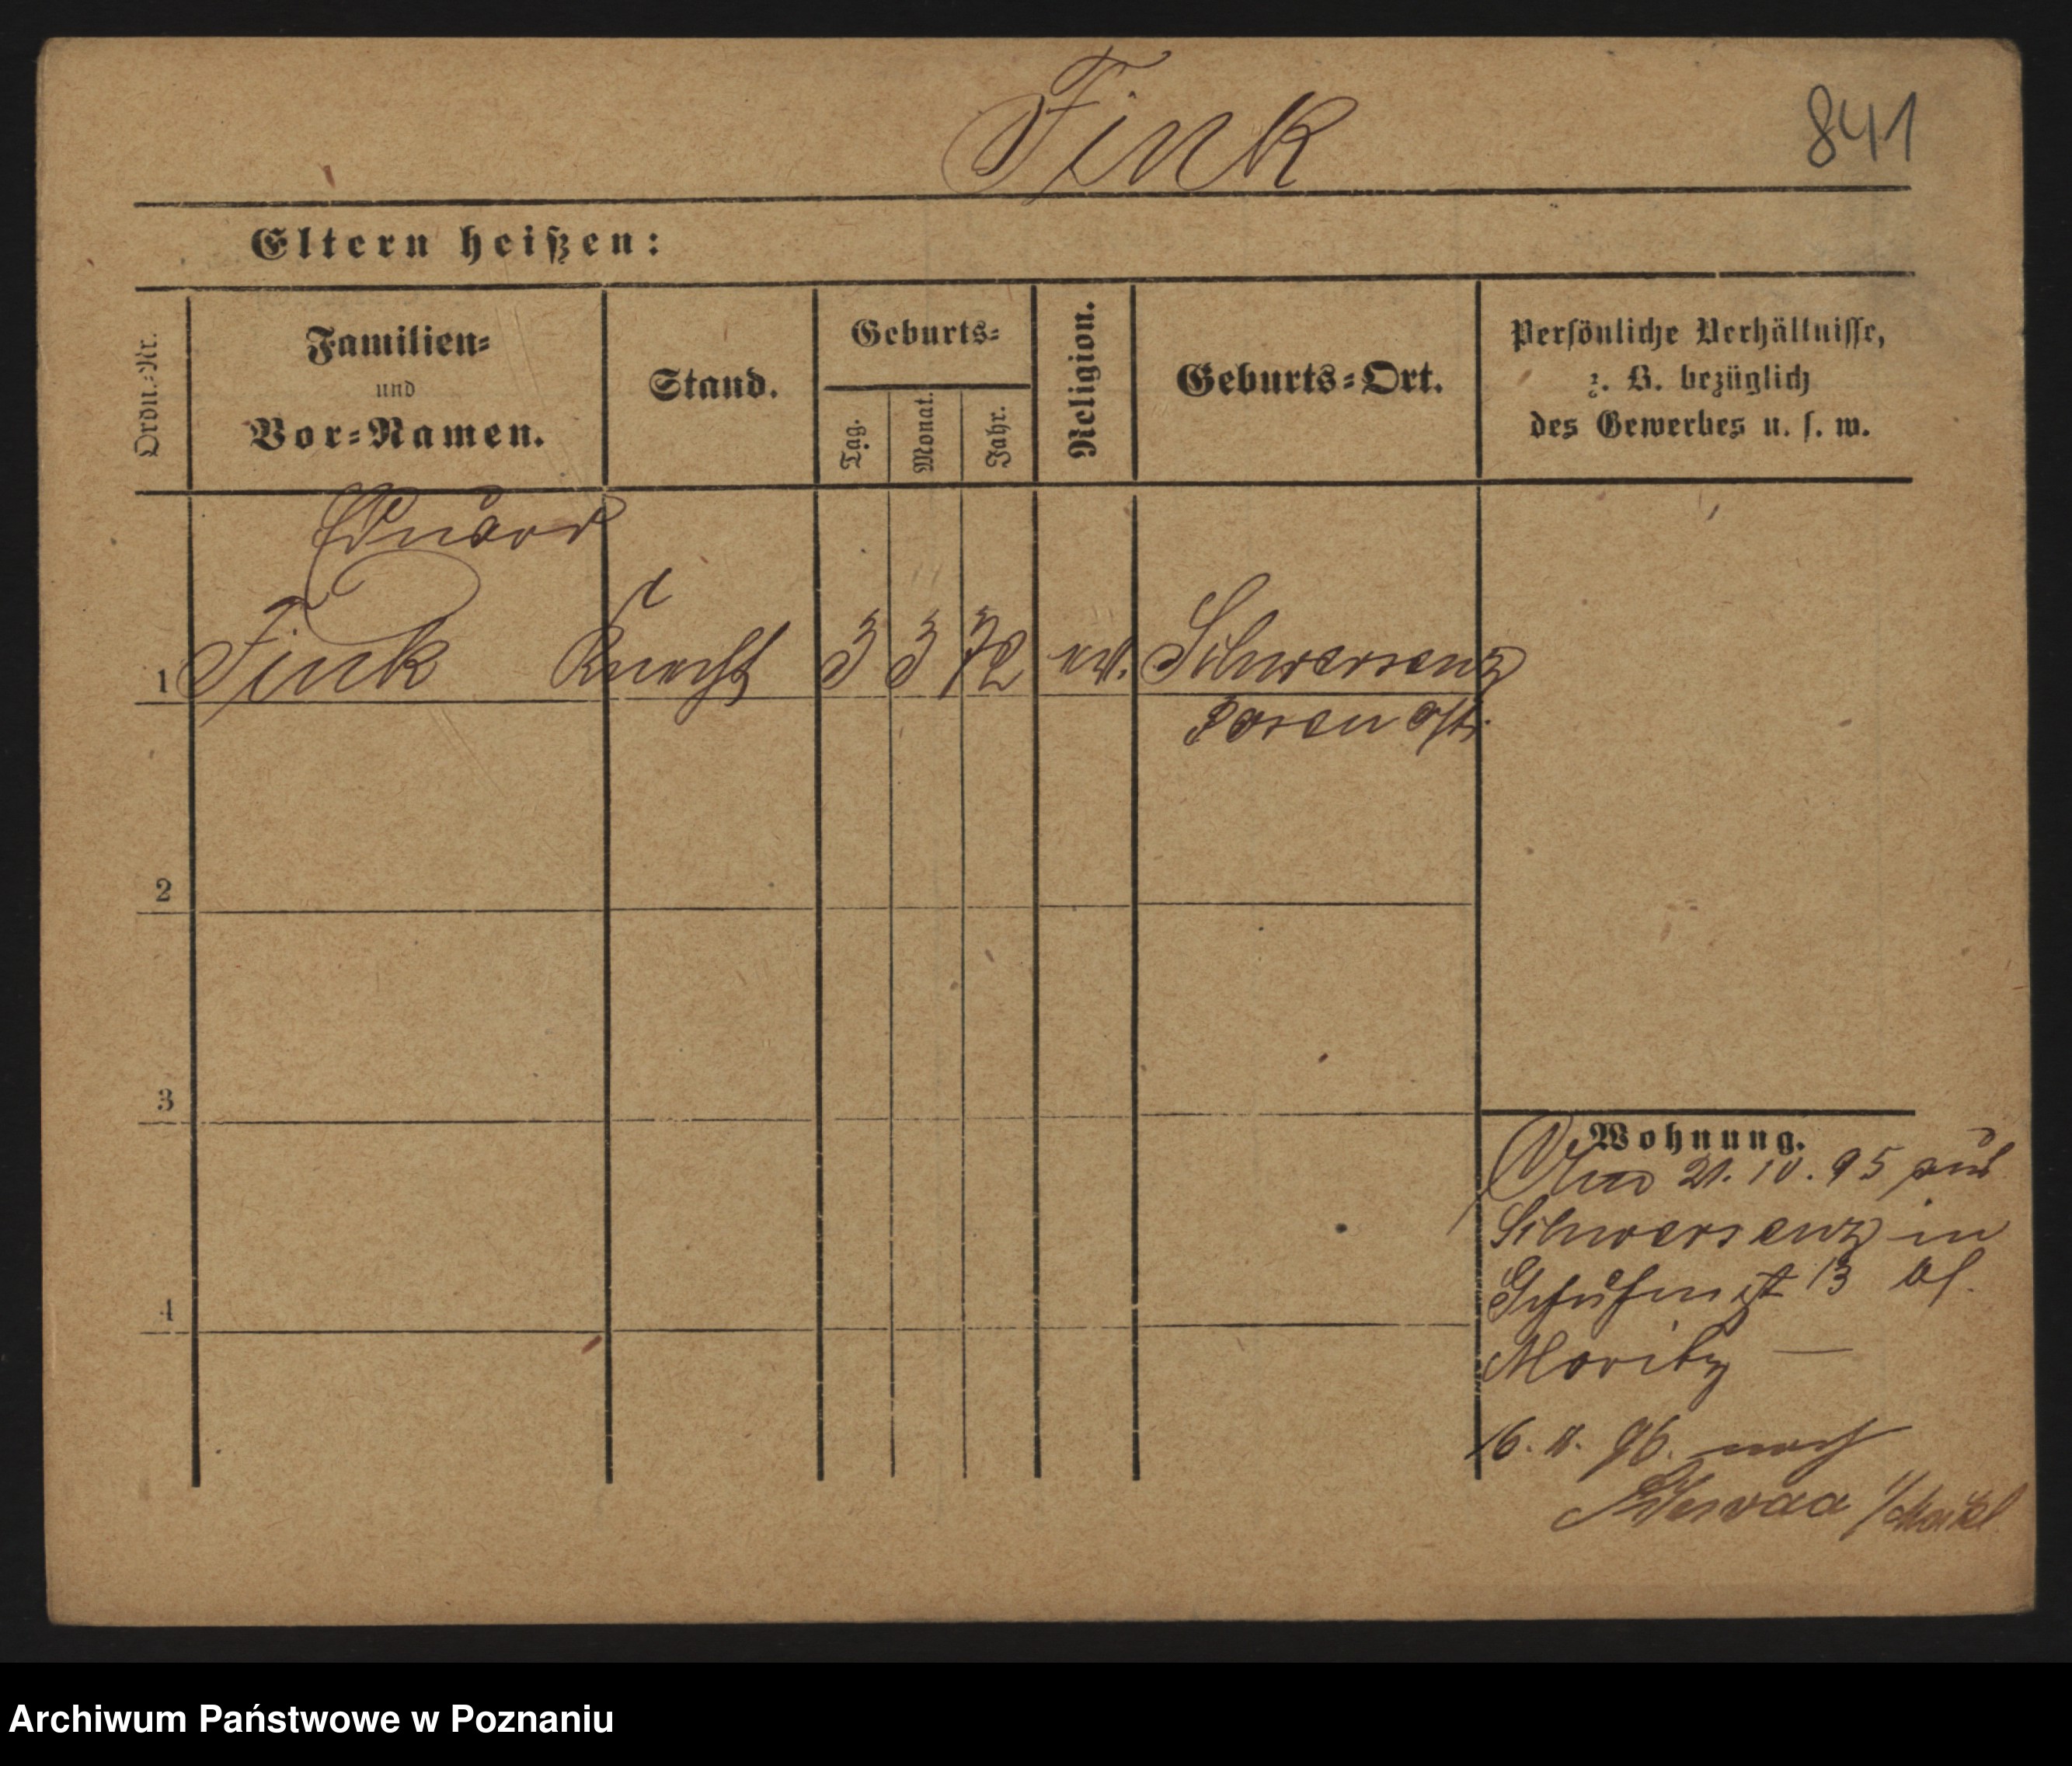 Fink
841
Eltern heißen:
Ordn.-Nr.
Familien-
und
Vor-Namen.
Stand.
Geburts-
Tag.
Monat.
Jahr.
Religion.
Geburts-Ort.
Persönliche Verhältnisse,
z. B. bezüglich
des Gewerbes u. s. w.
Eduard
1 Fink Knecht 3 3 72 Schwersenz
Posen Ost.
2
3
4
Wohnung.
21. 10. 95 aus
Schwersenz in
13
Moritz —
16. 11. 96. nach
Archiwum Państwowe w Poznaniu